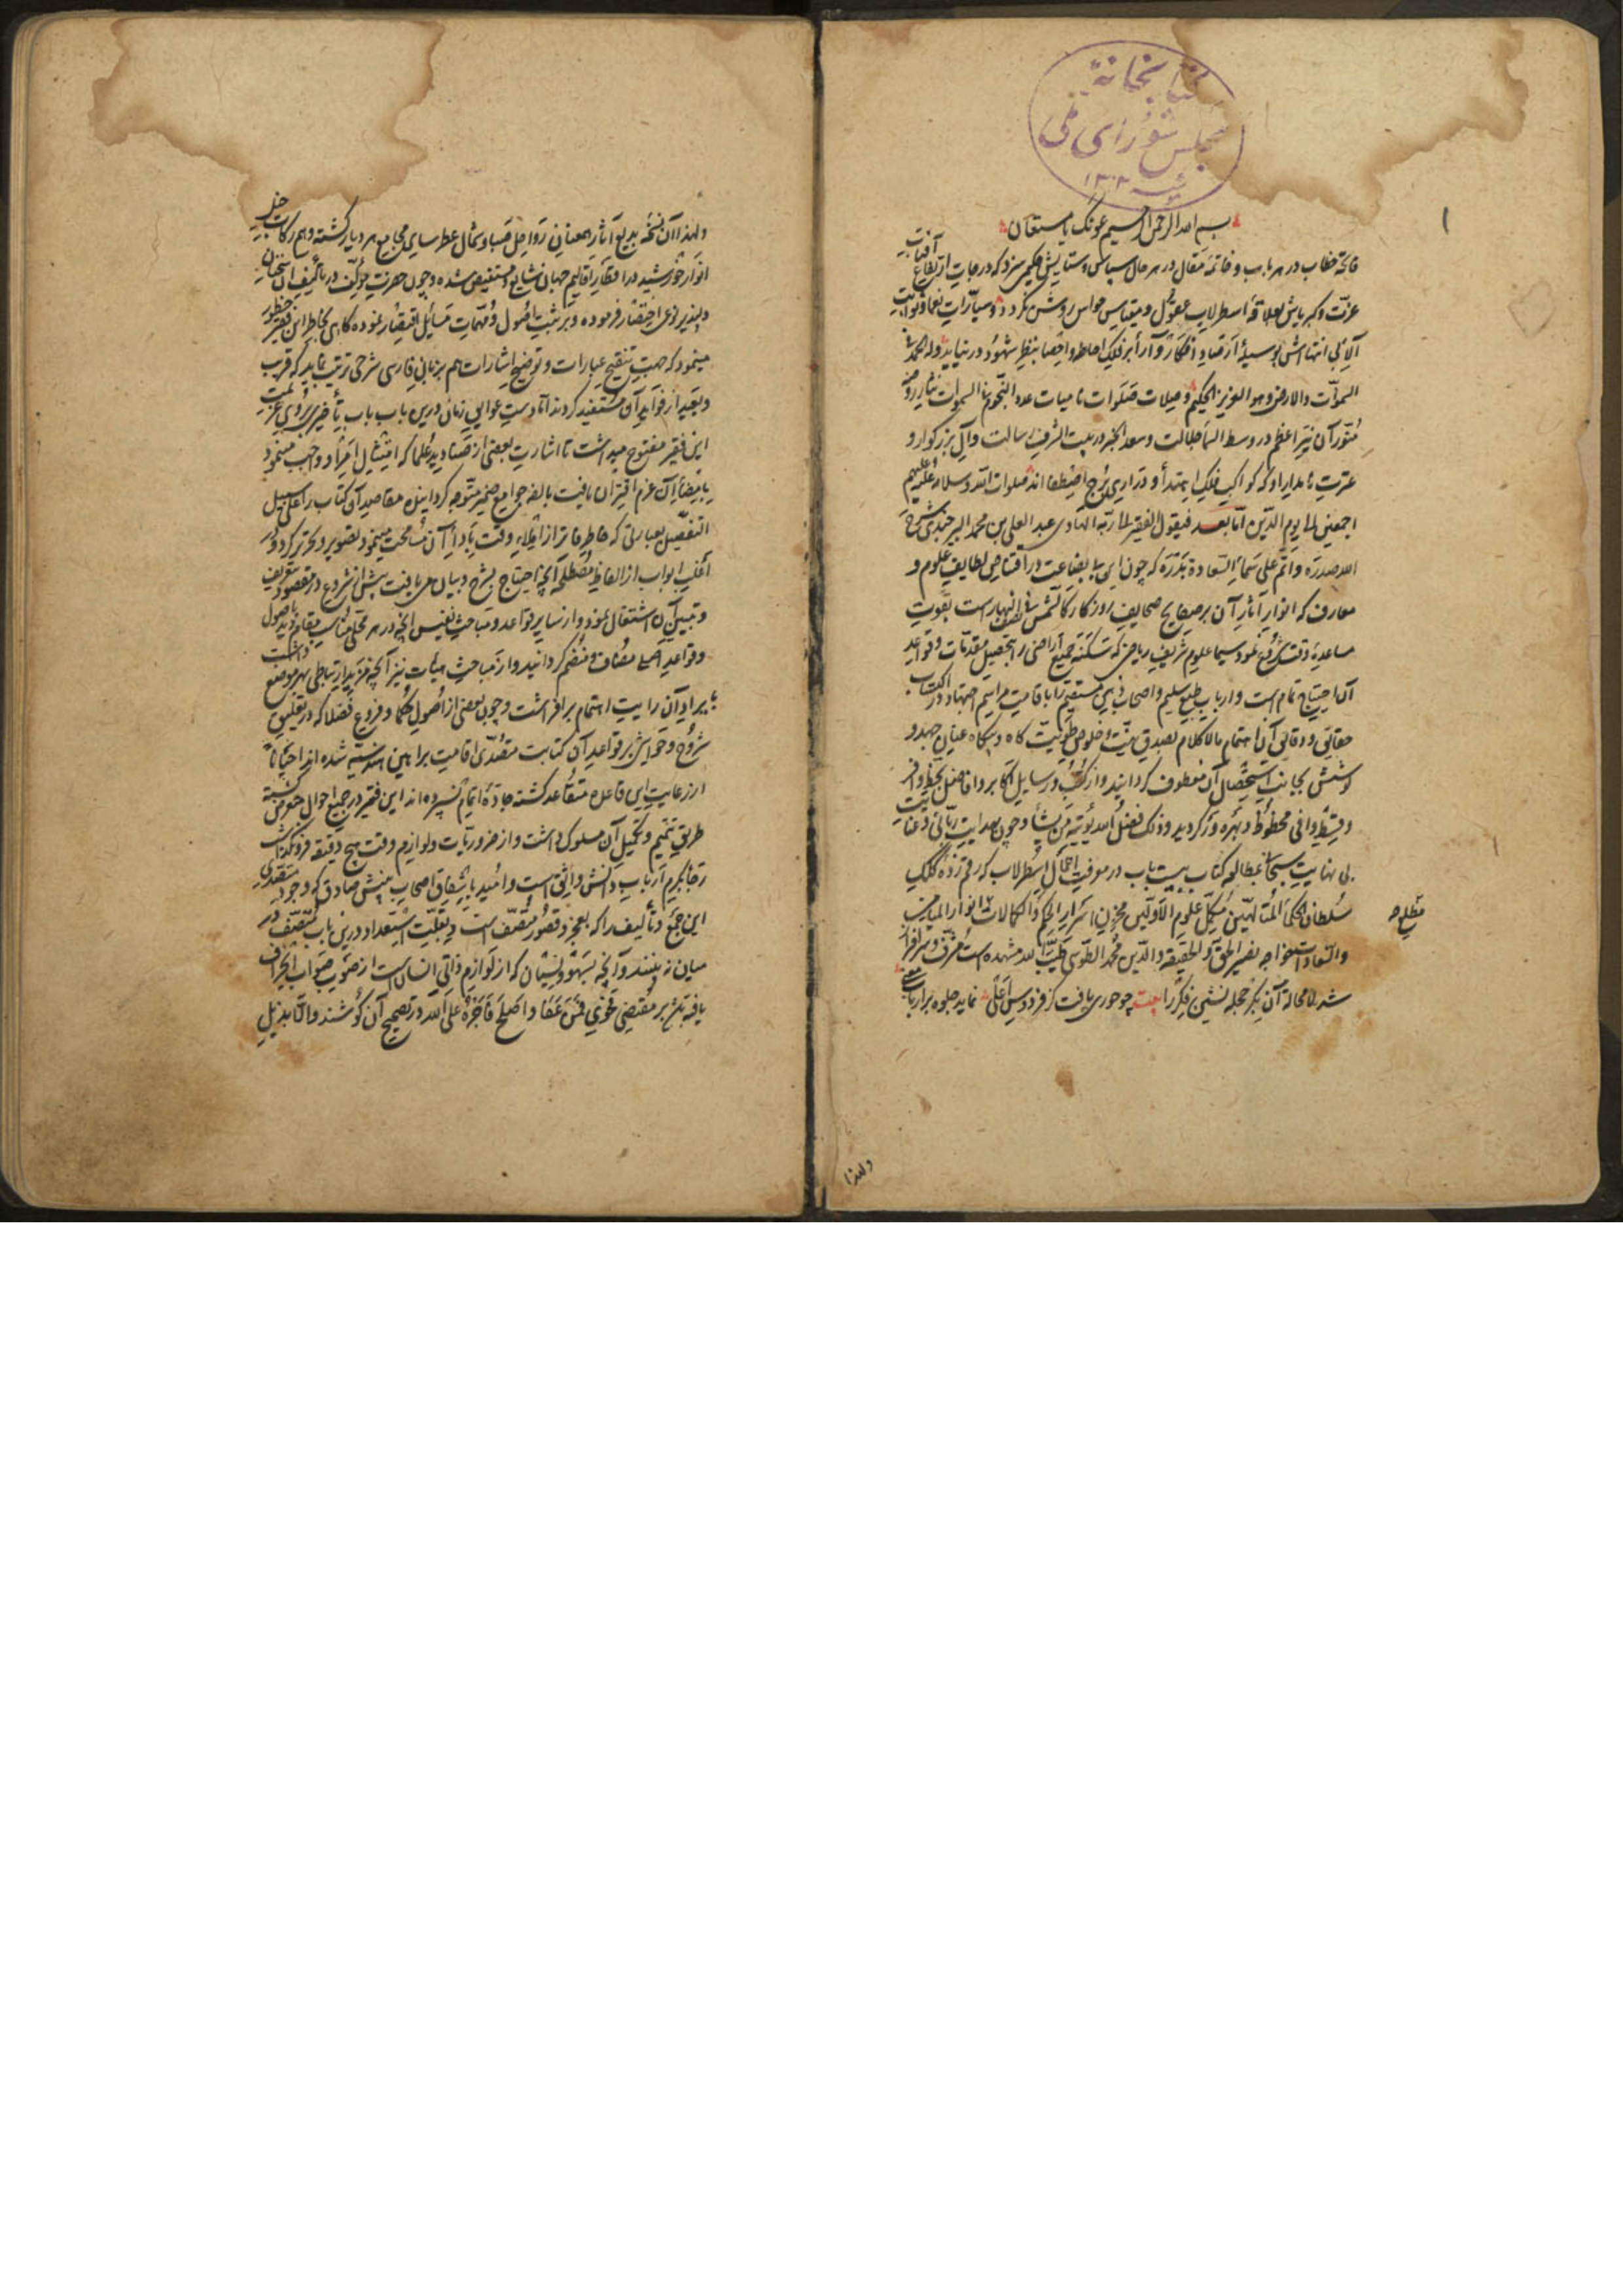 کتابخانه
مجلس شورای ملی
۱۳۰۲
۱
بسم الله الرحمن الرحیم عونک یا مستعان
فاتحه خطاب در هر باب و خاتمه مقال در هر حال سپاس و ستایش حکیمی سزد که درجات ارتفاع آفتاب
عزت و کبریایش بعلاقه اسطرلاب عقول و مقیاس حواس روشن نگردد و سیارات نعما و ثوابت
آلاء بی انتهااش بوسیله ارصاد افکار و آرا بر فلک احاطه و احصا بنظر شهود در نیاید و له الحمد فی
السموات والارض و هو العزیز الحکیم و صلات صلوات نامیات عدد النجوم فی السموات نثار روضه
منور آن نیر اعظم در وسط السماء جلالت و سعد اکبر در بیت الشرف رسالت و آل بزرگوار و
عترت نامدار او که کواکب فلک اهتدا و دراری برج اصطفا اند صلوات الله و سلامه علیهم
اجمعین الی یوم الدین اما بعد فیقول الفقیر الی ربه الهادی عبد العلی بن محمد البیرجندی شرح
الله صدره و اتم علی سماء السعادة بدره که چون این بی بضاعت در اقتناص لطایف علوم و
معارف که انوار آثار آن بر صفایح صحایف روزگار کالشمس فی نصف النهار است بقوت
مساعدت وقت شروع نمود سیما علوم شریف ریاضی که سکنه جمیع اراضی را بتحصیل مقدمات و قواعد
آن احتیاج تمام است و ارباب طبع سلیم و اصحاب ذهن مستقیم را باقامت مراسم اجتهاد در اکتساب
حقایق و دقایق آن اهتمام مالاکلام بصدق نیت و خلوص طویت گاه و بیگاه عنان جهد و
کوشش بجانب استحصال آن معطوف گردانید و از کتب و رسایل اکابر و افاضل بحظ وافر
و قسط وافی محظوظ و بهره ور گردید و ذلک فضل الله یؤتیه من یشاء و چون بهدایت ربانی و عنایت
بی نهایت سبحانی بمطالعه کتاب بیست باب در معرفت اعمال اسطرلاب که رقم زده کلک
سلطان الحکماء المتالهین مکمل علوم الاولین مخزن اسرار الحکم و الکمالات مطلع انوار المیامن
والسعادات خواجه نصیر الحق والحقیقه والدین محمد الطوسی طیب الله مشهده است مشرف و سرافراز
شد لا محاله آن بکر حجله نشین فکر را بیت چو حوری یافت کز فردوس اعلی نماید جلوه بر ارباب
ولهذا
ولهذا آن نسخه بدیع آثار همعنان رواحل صبا و شمال عطرسای مجامع هر دیار گشته و هم رکاب جنایب
انوار خورشید در اقطار اقالیم جهان شایع و مستفیض شده و چون حضرت مؤلف در تألیف آن
دلپذیر نوع اختصار فرموده و بر مثبت اصول و مهمات مسائل اقتصار نموده گاهی بخاطر این فقیر خطور
مینمود که جهت تنقیح عبارات و توضیح اشارات هم بزبان فارسی شرحی ترتیب نماید که قریب
و بعید از فواید آن مستفید گردند اما دست عوایق زمانی درین باب باب تأخیر بر روی عزیمت
این فقیر مفتوح میداشت تا اشارت بعضی از صنادید علما که امتثال امر او واجب مینمود
بامضاء آن عزم اقتران یافت بالضروره جوامع ضمیر متوجه گردانیده مقاصد آن کتاب را علی سبیل
التفصیل بعبارتی که خاطر فاتر از املاء وقت باداء آن مسامحت مینمود تصویر و تحریر کرد و در
اغلب ابواب از الفاظ مصطلحه آنچه احتیاج بشرح و بیان می یافت پیش از شروع در مقصود بتعریف
و تبیین آن اشتغال نمود و از سایر قواعد و مباحث نفیس آنچه در هر محلی مناسب مقام دید باصول
و قواعد مضاف و منضم گردانید و از مباحث هیأت نیز آنچه مزید ارتباطی بهر موضع داشت
بایراد آن رایت اهتمام برافراشت و چون بعضی از اصول حکما و فروع فضلا که در تعلیق
شروح و حواشی بر قواعد آن کتابت متصدی اقامت براهین هندسیه شده اند احیانا
از رعایت این قاعده متقاعد گشته جاده اتمام نسپرده اند این فقیر در جمیع احوال
طریق تتمیم و تکمیل آن مسلوک داشت و از ضروریات و لوازم وقت هیچ دقیقه فرو نگذاشت
رجا بکرم ارباب دانش واثق است و امید باشفاق اصحاب بینش صادق که وجود متصدی
این جمع و تألیف را که بعجز و قصور متصف است و بقلت استعداد درین باب معترف در
میان نه بینند و آنچه بسهو و نسیان که از لوازم ذاتی انسان است از صوب صواب انحراف
یافته باشد بر مقتضی فحوی فمن عفا و اصلح فاجره علی الله در تصحیح آن کوشند و الا بذیل